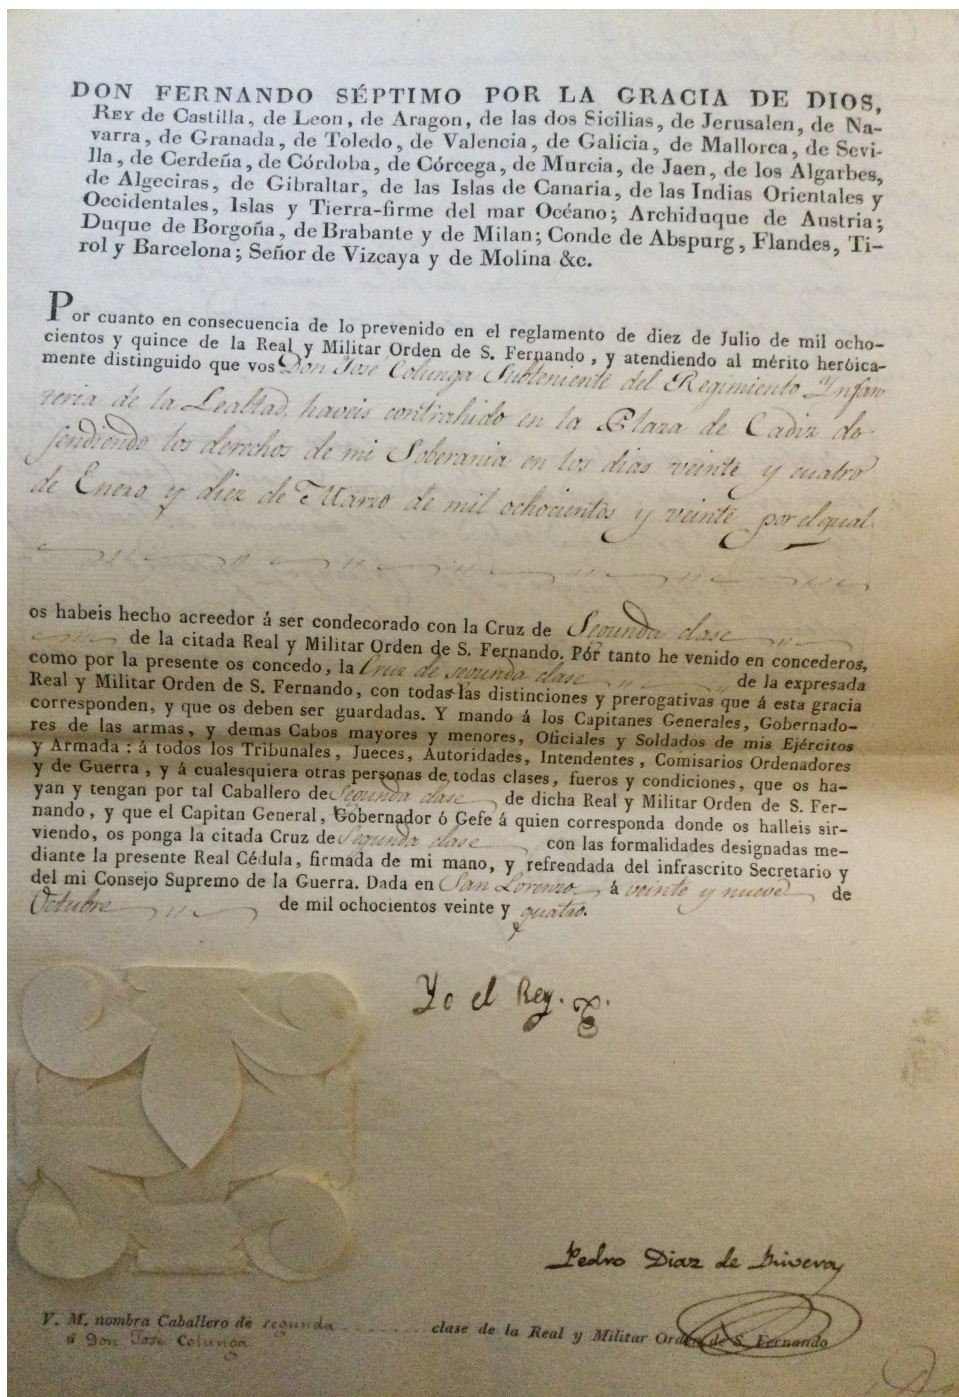 DON FERNANDO SÉPTIMO POR LA GRACIA DE DIOS,
REY de Castilla, de Leon, de Aragon, de las dos Sicilias, de Jerusalen, de Na-
varra, de Granada, de Toledo, de Valencia, de Galicia, de Mallorca, de Sevi-
lla, de Cerdeña, de Córdoba, de Córcega, de Murcia, de Jaen, de los Algarbes,
de Algeciras, de Gibraltar, de las Islas de Canaria, de las Indias Orientales y
Occidentales, Islas y Tierra-firme del mar Océano; Archiduque de Austria;
Duque de Borgoña, de Brabante y de Milan; Conde de Abspurg, Flandes, Ti-
rol y Barcelona; Señor de Vizcaya y de Molina &c.
Por cuanto en consecuencia de lo prevenido en el reglamento de diez de Julio de mil ocho-
cientos y quince de la Real y Militar Orden de S. Fernando, y atendiendo al mérito heróica-
mente distinguido que vos Don José Colunga Subteniente del Regimiento Infan
teria de la Lealtad, haveis contrahido en la Plaza de Cadiz de
fendiendo los derechos de mi Soberania en los dias veinte y cuatro
de Enero y diez de Marzo de mil ochocientos y veinte por el qual
os habeis hecho acreedor á ser condecorado con la Cruz de Segunda clase
de la citada Real y Militar Orden de S. Fernando. Pór tanto he venido en concederos,
como por la presente os concedo, la Cruz de segunda clase de la expresada
Real y Militar Orden de S. Fernando, con todas las distinciones y prerogativas que á esta gracia
corresponden, y que os deben ser guardadas. Y mando á los Capitanes Generales, Gobernado-
res de las armas, y demas Cabos mayores y menores, Oficiales y Soldados de mis Ejércitos
y Armada: á todos los Tribunales, Jueces, Autoridades, Intendentes, Comisarios Ordenadores
y de Guerra, y á cualesquiera otras personas de todas clases, fueros y condiciones, que os ha-
yan y tengan por tal Caballero de Segunda clase de dicha Real y Militar Orden de S. Fer-
nando, y que el Capitan General, Gobernador ó Gefe á quien corresponda donde os halleis sir-
viendo, os ponga la citada Cruz de Segunda clase con las formalidades designadas me-
diante la presente Real Cédula, firmada de mi mano, y refrendada del infrascrito Secretario y
del mi Consejo Supremo de la Guerra. Dada en San Lorenzo á veinte y nueve de
Octubre de mil ochocientos veinte y quatro.
Yo el Rey.
Pedro Diaz de Rivera
V. M. nombra Caballero de segunda ........ clase de la Real y Militar Orden de S. Fernando
á Don José Colunga